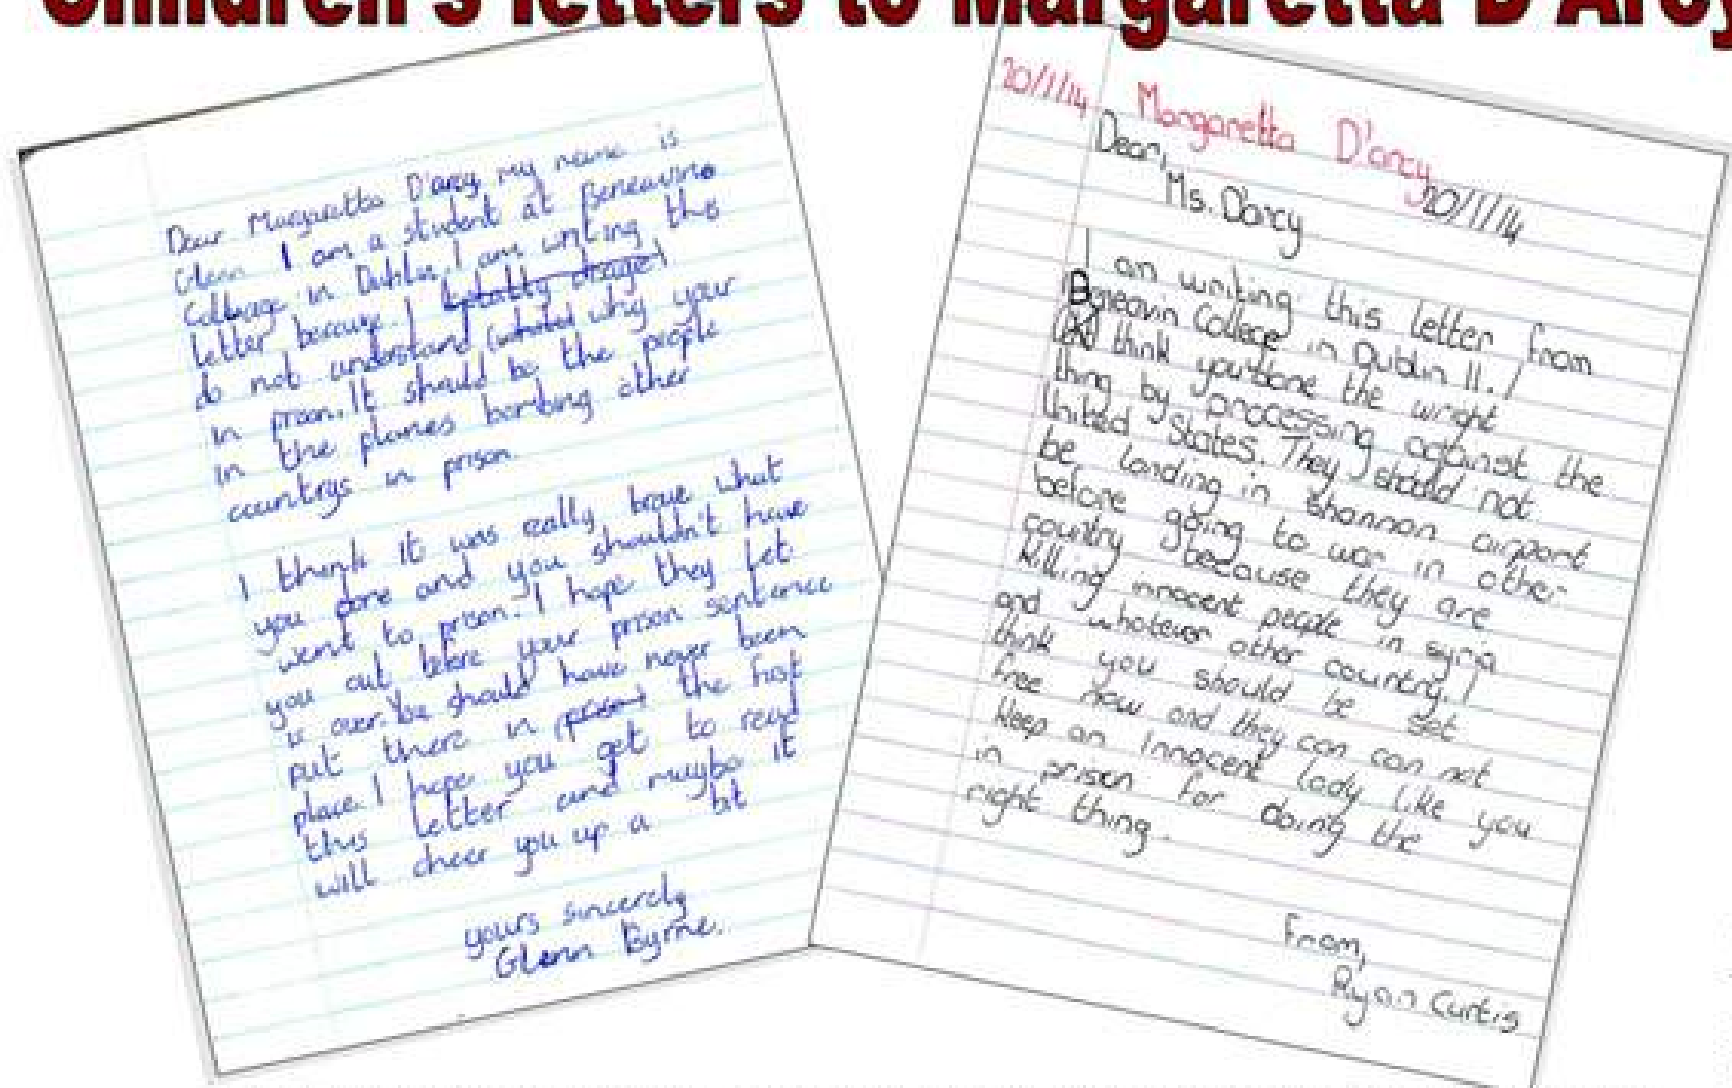 Children's letters to Margaretta D'Arcy
Dear Margaretta D'arcy my name is
Glenn I am a student at Beneavin
Collage in Dublin, I am writing this
letter because I totally
do not understand why your
in prison. It should be the people
in the planes bombing other
countrys in prison.
I think it was really brave what
you done and you shouldn't have
went to prison. I hope they let
you out before your prison sentence
is over. You should have never been
put there in the first
place. I hope you get to read
this letter and maybe it
will cheer you up a bit
yours sincerely
Glenn Byrne.
20/1/14 Margaretta D'arcy
Dear, 20/1/14
Ms. D'arcy
I an writing this letter from
Beneavin College in Dublin 11. I
think you'v done the wright
thing by processing against the
United States. They should not
be landing in Shannon airport
before going to war in other
country because they are
killing innocent people in syria
and whatever other country. I
think you should be set
free now and they can can not
keep an innocent lady like you
in prison for doing the
right thing.
From,
Ryan Curtis